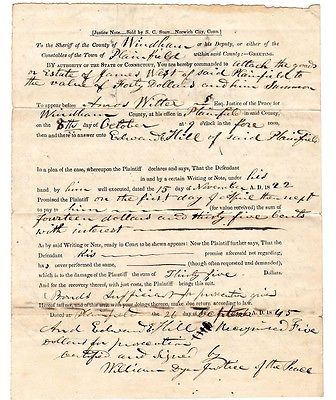 [Justice Note.—Sold by S. C. Starr—Norwich City, Conn.]
To the Sheriff of the County of Windham or his Deputy, or either of the
Constables of the Town of Plainfield
BY AUTHORITY OF THE STATE OF CONNECTICUT, You are hereby commanded to attach the goods
or Estate of James West of said Plainfield to
the value of Forty Dollars and him Summon
To appear before Amos Witter Esq. Justice of the Peace for
Windham County, at his office in Plainfield in said County,
on the 8th day of October at 9 o'clock in the fore noon,
then and there to answer unto Edward Hill of said Plainfield
In a plea of the case, whereupon the Plaintiff declares and says, That the Defendant
in and by a certain Writing or Note, under his
hand by him well executed, dated the 15 day of November A.D. 1822
Promised the Plaintiff on the first day of April then next
to pay him (for value received) the sum of
dollars and thirty five cents
with interest
As by said Writing or Note, ready in Court to be shewn appears: Now the Plaintiff further says, That the
Defendant his promise aforesaid not regarding,
has never performed the same, (though often requested and demanded)
which is to the damage of the Plaintiff the sum of Thirty five Dollars.
And for the recovery thereof, with just costs, the Plaintiff brings this suit.
Bonds sufficient to prosecute given
Hereof fail not, and of this writ and your doings thereon, make due return according to law.
Dated at Plainfield the 26 day of September A.D. 1845
And Edward Hill Recognised Five
Dollars for prosecution
Certified and signed by
William Dyer Justice of the Peace